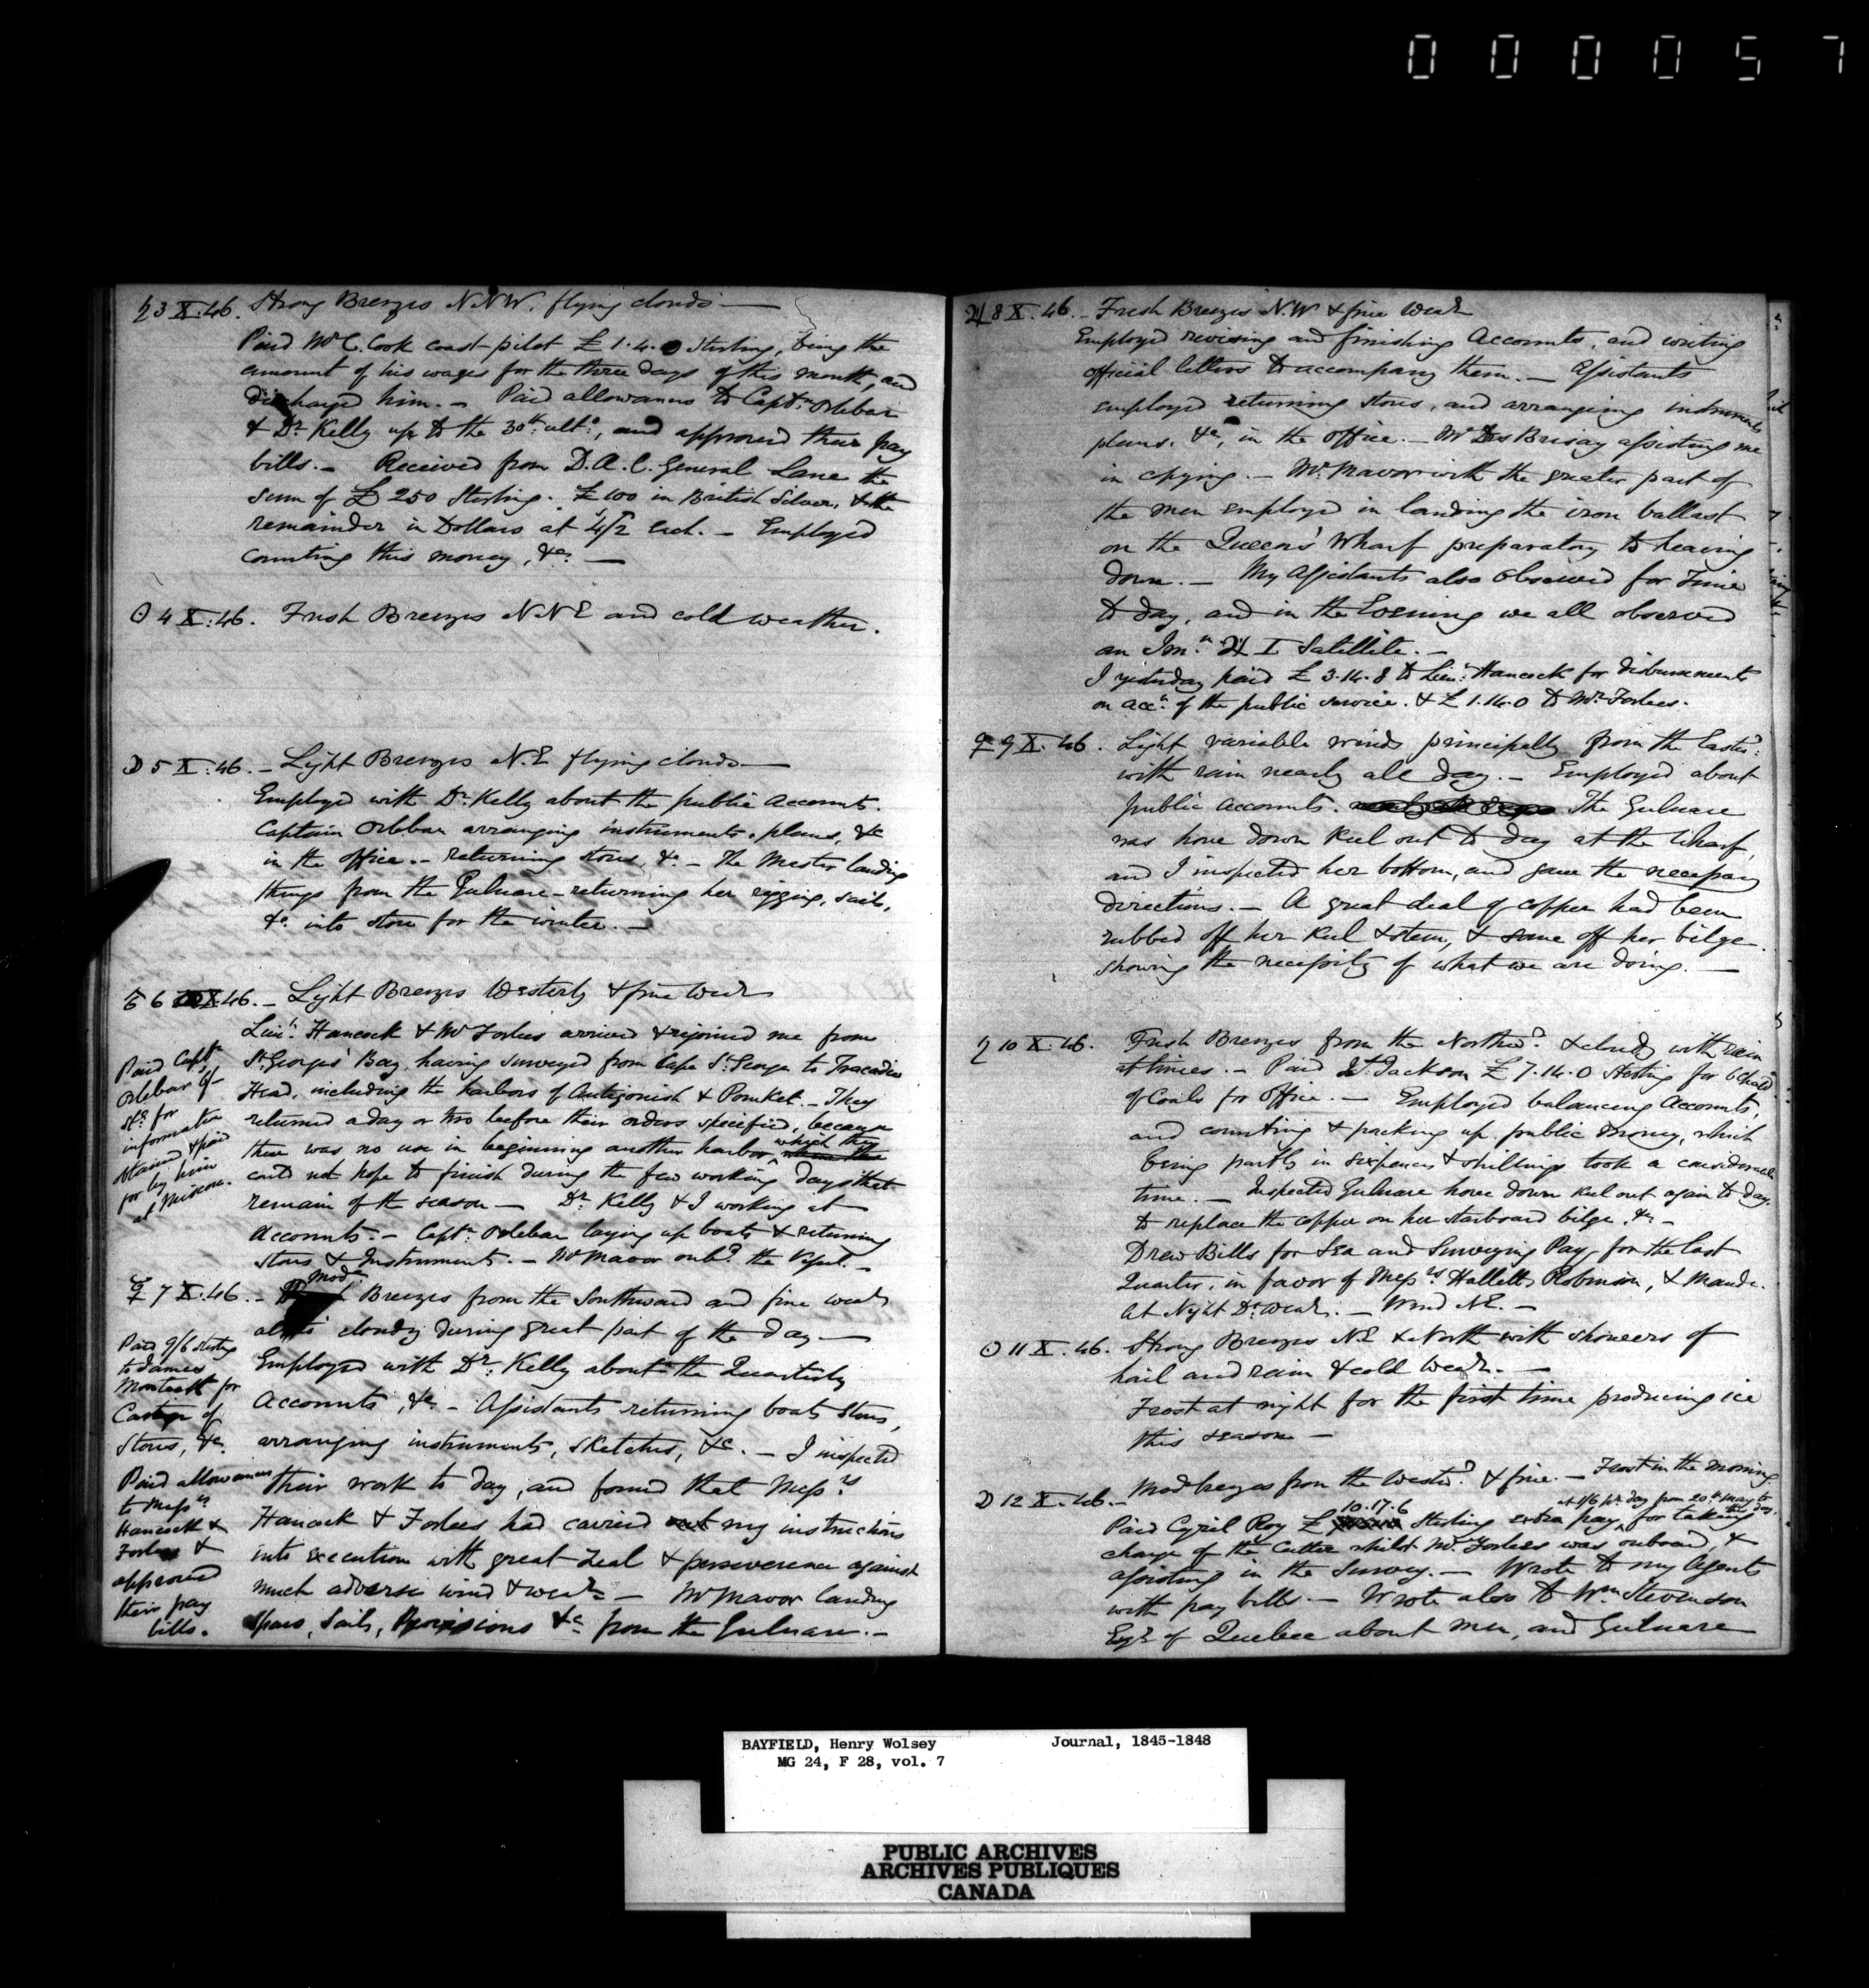 000057
♄ 3 X. 46. Strong Breezes N.N.W. flying clouds —
Paid Mr C. Cook coast pilot £ 1. 4. 0 Sterling, being the
amount of his wages for the three days of this month, and
discharged him. — Paid allowances to Captn. Orlebar
& Dr. Kelly up to the 30th ulto, and approved their pay
bills. — Received from D.A.C. General Lane the
sum of £ 250 Sterling. £ 100 in British Silver, & the
remainder in Dollars at 4/2 each. — Employed
counting this money, &c. —
☉ 4 X. 46. Fresh Breezes N.N.E and cold weather.
☽ 5 X. 46. — Light Breezes N.E flying clouds —
Employed with Dr. Kelly about the public Accounts.
Captain Orlebar arranging instruments, plans, &c
in the office. — returning stores, &c — The Master landing
things from the Gulnare — returning her rigging, sails,
&c. into store for the winter. —
♂ 6 X. 46. — Light Breezes Westerly & fine Wear
Lieut. Hancock & Mr Forbes arrived & rejoined me from
St. Georges' Bay, having surveyed from Cape St. George to Tracadie
Head, including the harbors of Antigonish & Pomket. — They
returned a day or two before their orders specified, because
there was no use in beginning another harbor which they
could not hope to finish during the few working days that
remain of the season — Dr. Kelly & I working at
Accounts. — Captn. Orlebar laying up boats & returning
Stores & Instruments. — Mr Mavor onbd. the Vessel. —
Paid Captn
Orlebar 6/-
Sg. for
information
obtained & paid
for by him
at Miscou.
☿ 7 X. 46. — Mode. Breezes from the Southward and fine Wear
altho' cloudy during great part of the day —
Employed with Dr. Kelly about the Quarterly
Accounts, &c. — Assistants returning boats Stores,
arranging instruments, sketches, &c. — I inspected
their work to day, and found that Messrs
Hancock & Forbes had carried out my instructions
into execution with great zeal & perseverence against
much adverse wind & wear — Mr Mavor landing
Spars, Sails, Provisions &c from the Gulnare. —
Paid 9/6 Sterling
to James
for
Cartage of
Stores, &c.
Paid allowances
to Messrs
Hancock &
Forbes &
approved
their pay
bills.
♃ 8 X. 46. — Fresh Breezes N.W & fine Wear
Employed revising and finishing Accounts, and writing
official letters to accompany them. — Assistants
employed returning stores, and arranging instruments
plans, &c, in the office. — Mr Des Brisay assisting me
in copying. — Mr. Mavor with the greater part of
the men employed in landing the iron ballast
on the Queens' Wharf preparatory to heaving
down. — My Assistants also observed for Time
to day, and in the Evening we all observed
an Imn. ♃ I Satellite. —
I yesterday paid £ 3. 14. 8 to Lieut. Hancock for disbursements
on acct. of the public service. & £ 1. 14. 0 to Mr. Forbes.
♀ 9 X. 46. Light variable winds principally from the Eastd.
with rain nearly all day. — Employed about
public Accounts. The Gulnare
was hove down keel out to day at the Wharf,
and I inspected her bottom, and gave the necessary
directions. — A great deal of copper had been
rubbed off her keel & stem, & some off her bilge
showing the necessity of what we are doing. —
♄ 10 X. 46. Fresh Breezes from the Northwd. & cloudy with rain
at times. — Paid Jackson £ 7. 14. 0 Sterling for
of Coals for Office. — Employed balancing Accounts,
and counting & packing up public money, which
being partly in sixpences & shillings took a considerable
time. — Inspected Gulnare hove down keel out again to day.
to replace the copper on her starboard bilge, &c —
Drew Bills for Sea and Surveying Pay for the last
Quarter, in favor of Messrs Halletts Robinson, & Maude.
At Night Do. Wear. — Wind N.E. —
☉ 11 X. 46. Strong Breezes N.E & North with showers of
hail and rain & cold Wear. —
Frost at night for the first time producing ice
this season —
☽ 12 X. 46. — Mod breezes from the Westd. & fine. — Frost in the morning
Paid Cyril Roy £ 10.17.6 Sterling extra pay at 1/6 pr. day from 20th May to this day. for taking
charge of the Cutter whilst Mr. Forbes was onboard, &
assisting in the Survey. — Wrote to my Agents
with pay bills. — Wrote also to Wm. Stevenson
Esqr. of Quebec about men, and Gulnare
BAYFIELD, Henry Wolsey Journal, 1845-1848
MG 24, F 28, vol. 7
PUBLIC ARCHIVES
ARCHIVES PUBLIQUES
CANADA